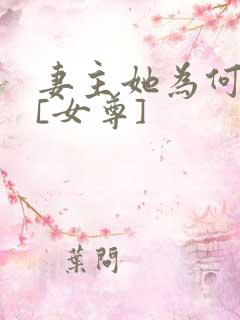 妻主她為何
[女尊]
葉問